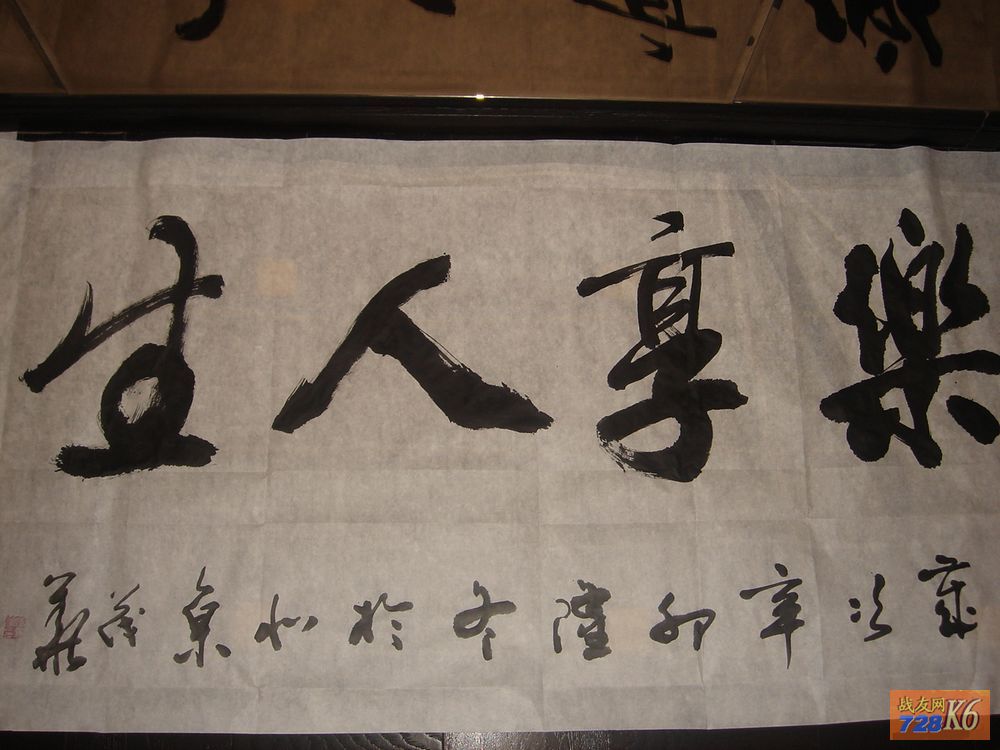 樂享人生
歲次辛卯隆冬於北京
战友网
728K6